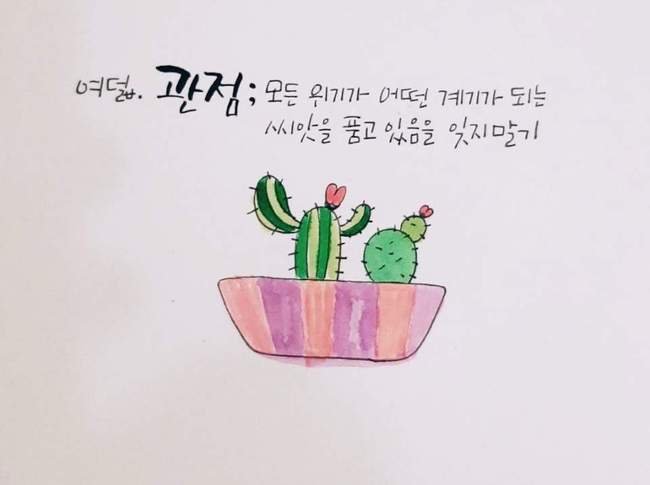 여덟. 관점; 모든 위기가 어떤 계기가 되는
씨앗을 품고 있음을 잊지말기